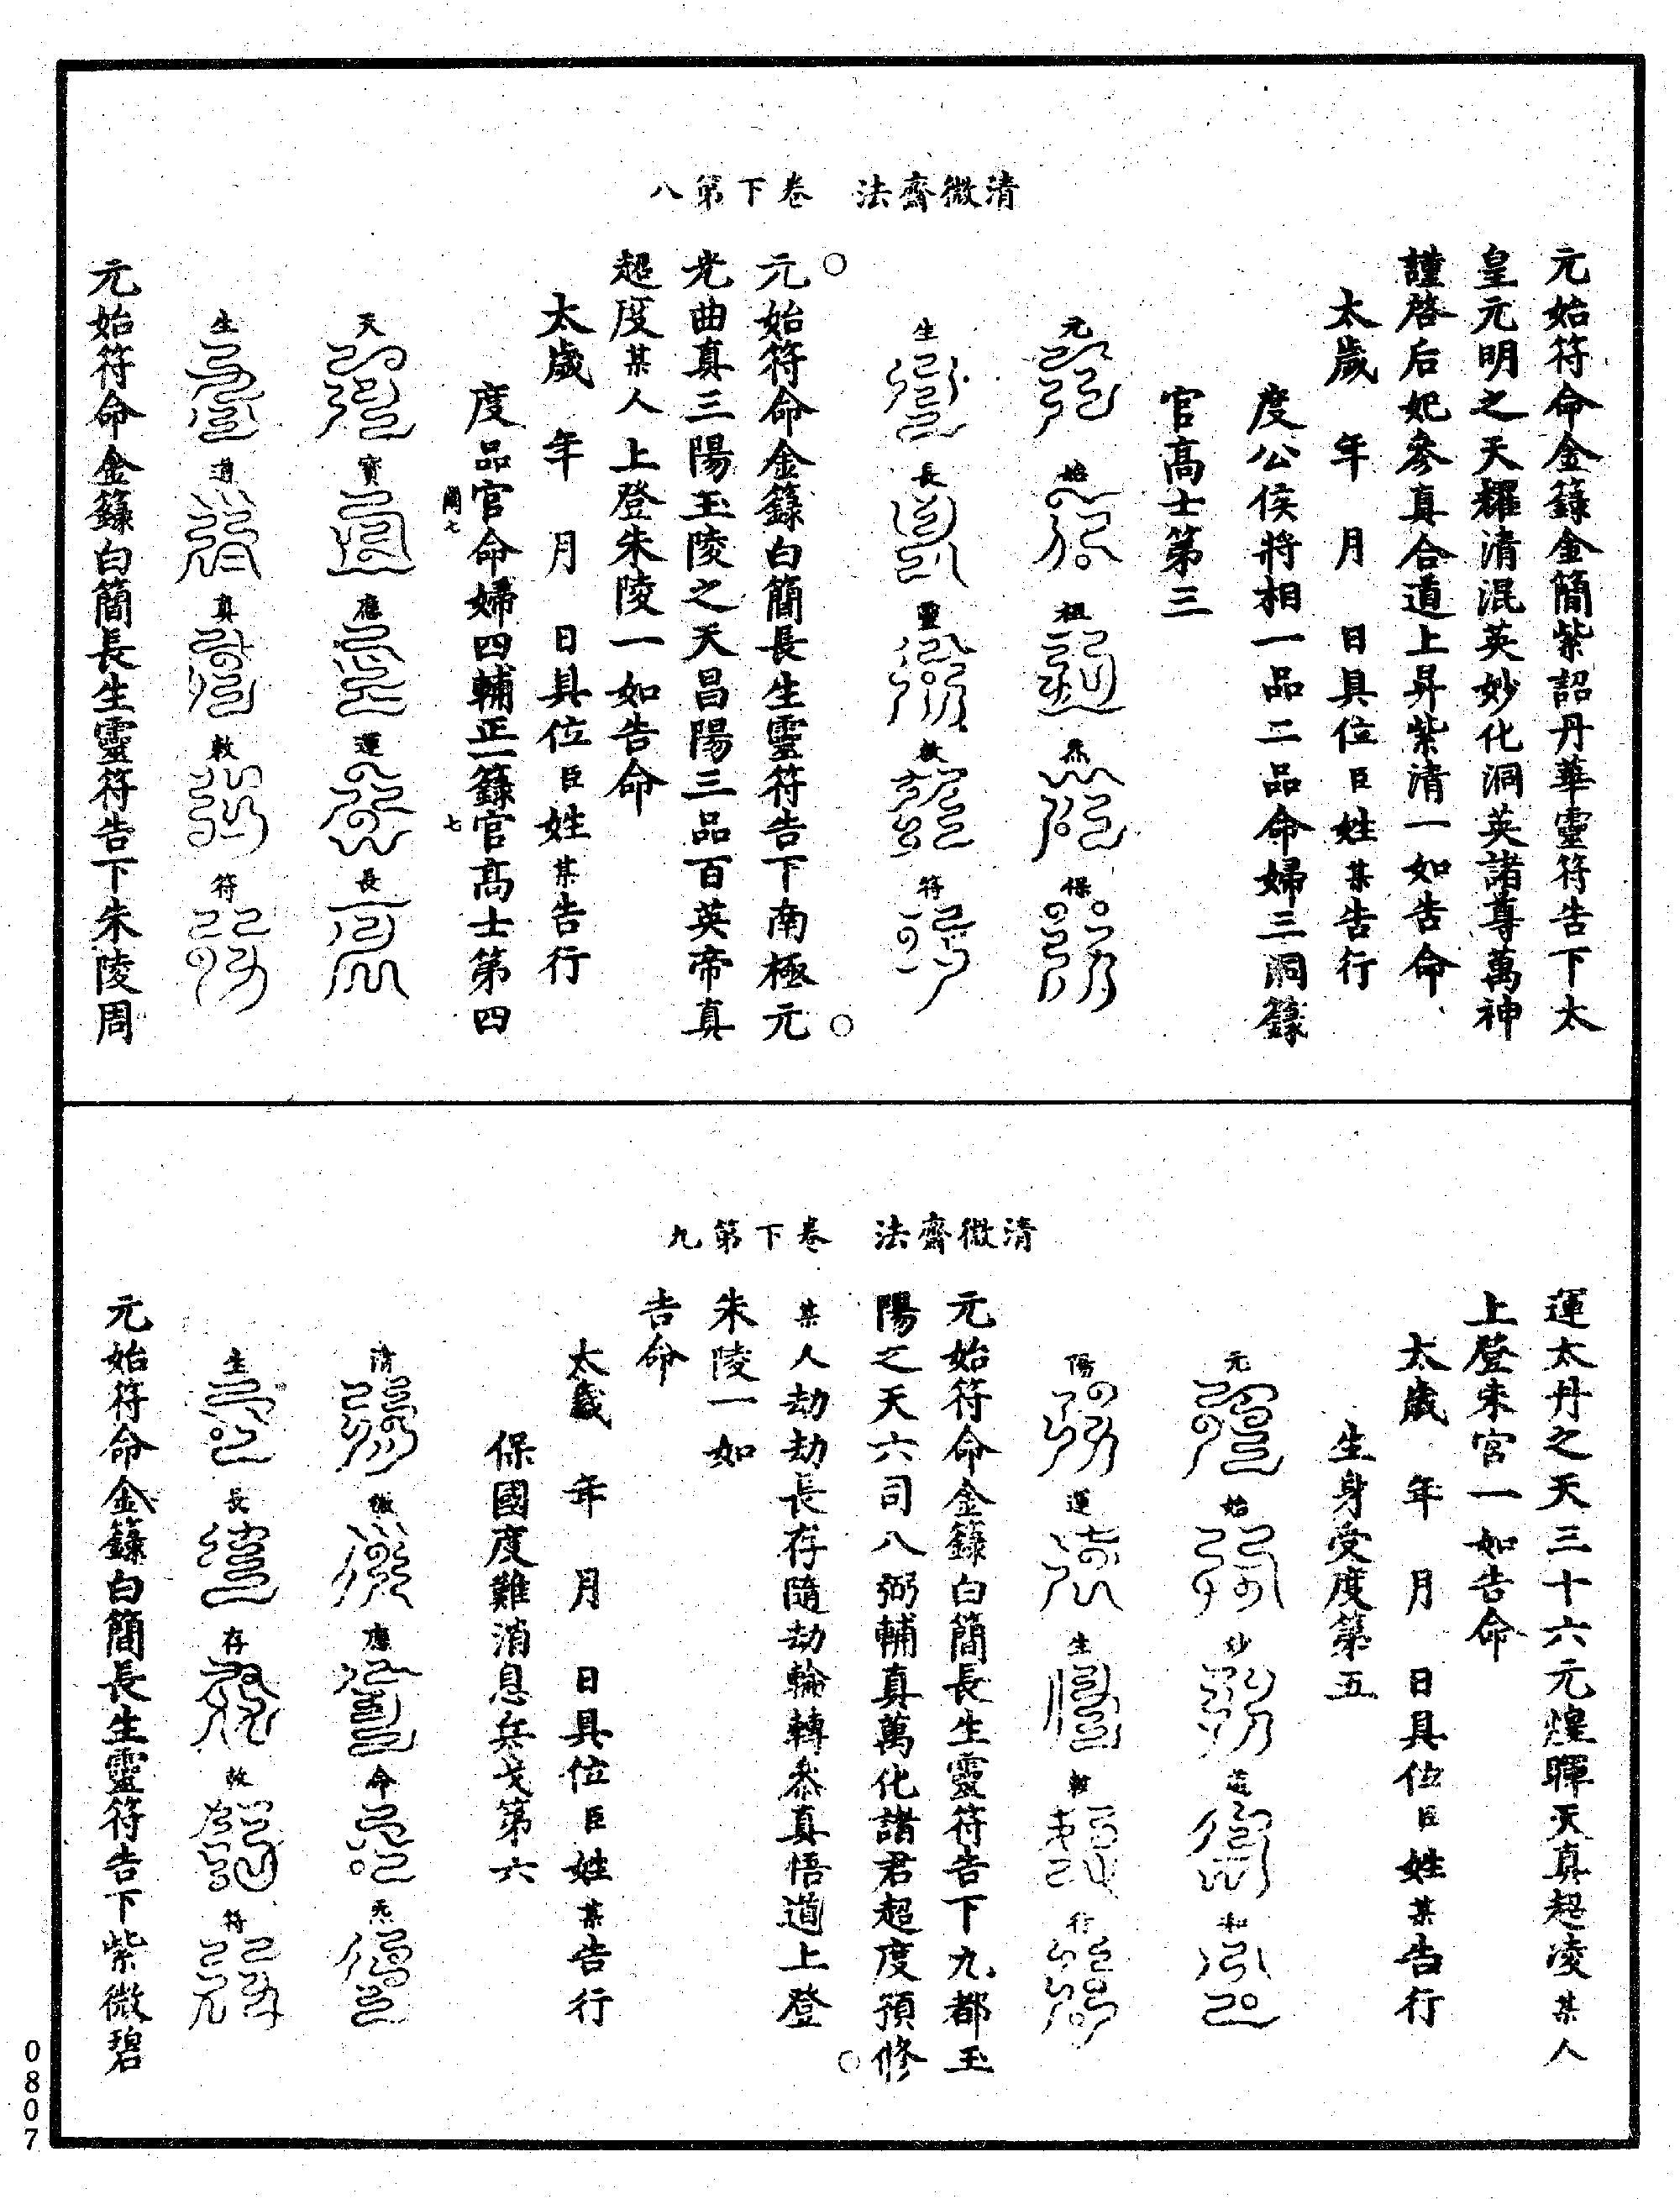 清微齋法　卷下第八
元始符命金籙金簡紫詔丹華靈符告下太
皇元明之天耀清混英妙化洞英諸尊萬神
謹啓后妃參真合道上昇紫清一如告命
太歲　年　月　日具位臣姓某告行
度公侯將相一品二品命婦三洞籙
官高士第三
元　始　祖　炁　保
生　長　靈　敕　符
元始符命金籙白簡長生靈符告下南極元
光曲真三陽玉陵之天昌陽三品百英帝真
超度某人上登朱陵一如告命
太歲　年　月　日具位臣姓某告行
度品官命婦四輔正一籙官高士第四
闕七　七
天　寶　應　運　長
生　道　真　敕　符
元始符命金籙白簡長生靈符告下朱陵周
清微齋法　卷下第九
運太丹之天三十六元煌暉天真超凌某人
上登朱宮一如告命
太歲　年　月　日具位臣姓某告行
生身受度第五
元　始　妙　道　和
陽　運　生　敕　行
元始符命金籙白簡長生靈符告下九都玉
陽之天六司八弼輔真萬化諸君超度預修
某人劫劫長存隨劫輪轉叅真悟道上登
朱陵一如
告命
太歲　年　月　日具位臣姓某告行
保國度難消息兵戈第六
清　微　應　命　炁
生　長　存　敕　符
元始符命金籙白簡長生靈符告下紫微碧
0807